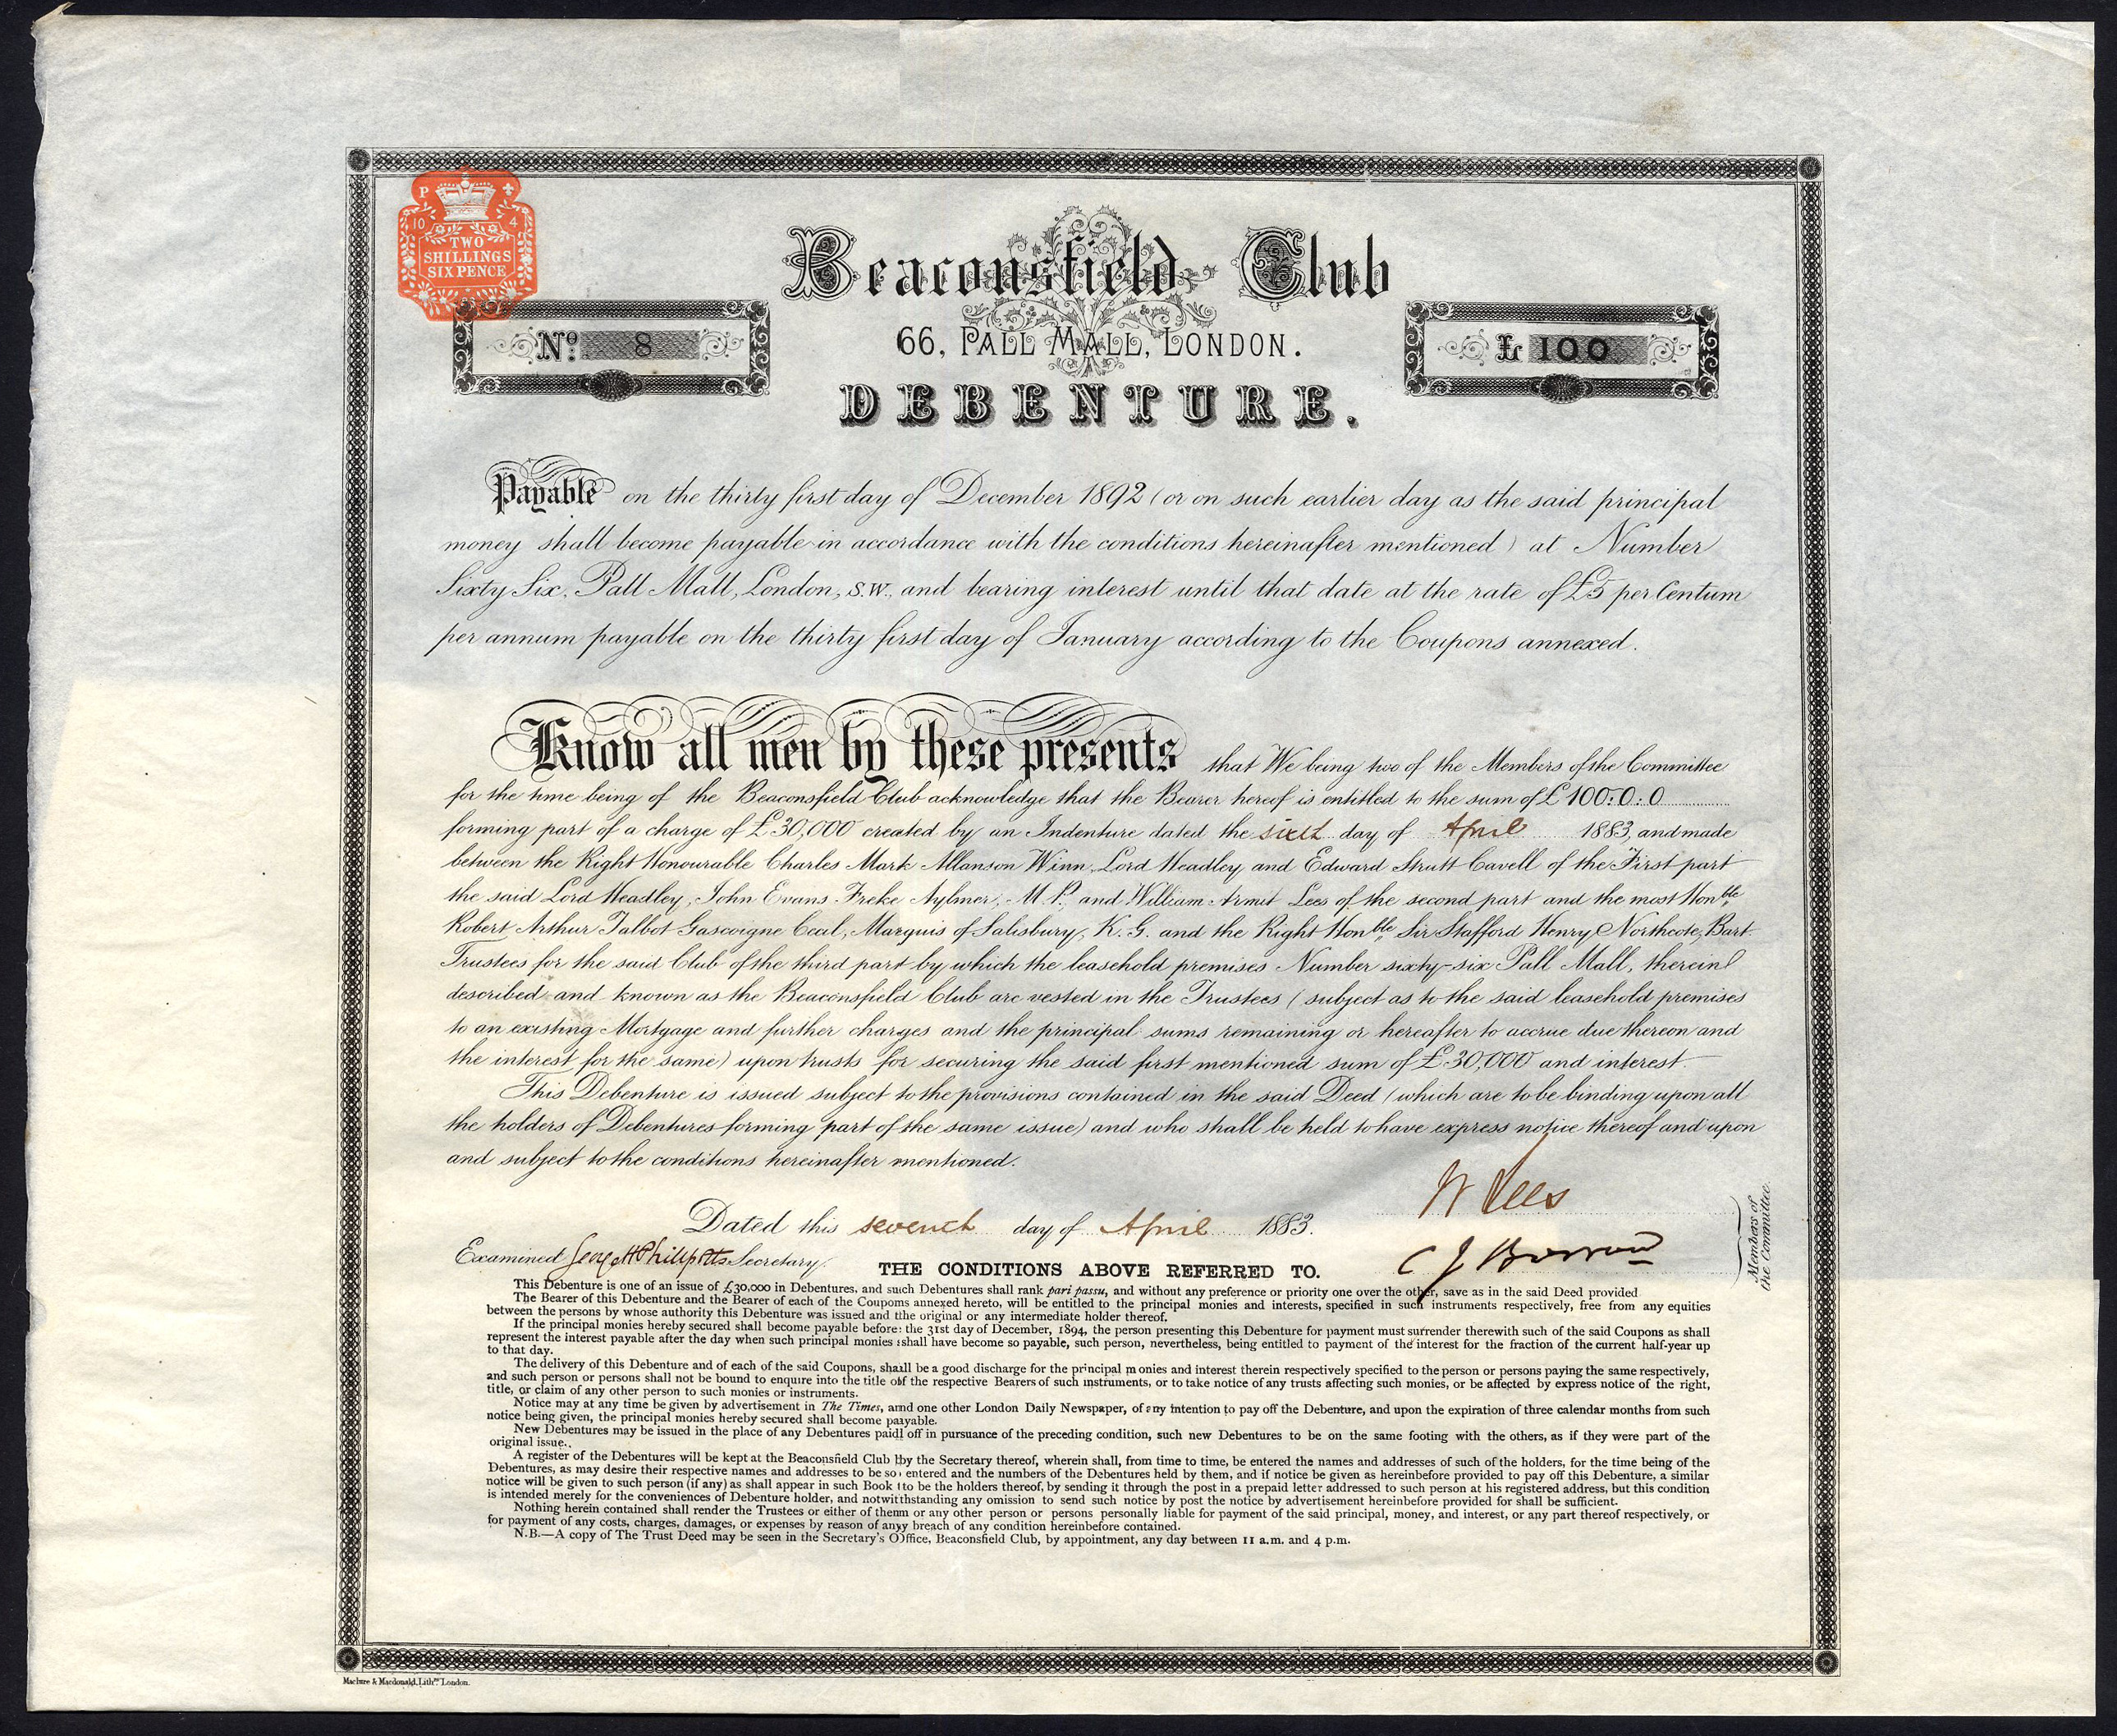 P
10 4
TWO
SHILLINGS
SIX PENCE
Beaconsfield Club
No. 8
66, PALL MALL, LONDON.
£ 100
DEBENTURE.
Payable on the thirty first day of December 1892 (or on such earlier day as the said principal
money shall become payable in accordance with the conditions hereinafter mentioned) at Number
Sixty Six, Pall Mall, London, S.W., and bearing interest until that date at the rate of £5 per Centum
per annum payable on the thirty first day of January according to the Coupons annexed.
Know all men by these presents that We being two of the Members of the Committee
for the time being of the Beaconsfield Club acknowledge that the Bearer hereof is entitled to the sum of £100:0:0
forming part of a charge of £30,000 created by an Indenture dated the sixth day of April 1883, and made
between the Right Honourable Charles Mark Allanson Winn, Lord Headley and Edward Strutt Cavell of the First part
the said Lord Headley, John Evans Freke Aylmer, M.P. and William Armit Lees of the second part and the most Honble
Robert Arthur Talbot Gascoigne Cecil, Marquis of Salisbury, K.G. and the Right Honble Sir Stafford Henry Northcote, Bart.
Trustees for the said Club of the third part by which the leasehold premises Number sixty-six Pall Mall, therein
described and known as the Beaconsfield Club are vested in the Trustees (subject as to the said leasehold premises
to an existing Mortgage and further charges and the principal sums remaining or hereafter to accrue due thereon and
the interest for the same) upon trusts for securing the said first mentioned sum of £30,000 and interest.
This Debenture is issued subject to the provisions contained in the said Deed (which are to be binding upon all
the holders of Debentures forming part of the same issue) and who shall be held to have express notice thereof and upon
and subject to the conditions hereinafter mentioned.
W Lees
Dated this seventh day of April 1883.
C J Borrow
Members of
the Committee.
Examined George H Phillpotts Secretary.
THE CONDITIONS ABOVE REFERRED TO.
This Debenture is one of an issue of £30,000 in Debentures, and such Debentures shall rank pari passu, and without any preference or priority one over the other, save as in the said Deed provided
The Bearer of this Debenture and the Bearer of each of the Coupons annexed hereto, will be entitled to the principal monies and interests, specified in such instruments respectively, free from any equities
between the persons by whose authority this Debenture was issued and the original or any intermediate holder thereof.
If the principal monies hereby secured shall become payable before the 31st day of December, 1894, the person presenting this Debenture for payment must surrender therewith such of the said Coupons as shall
represent the interest payable after the day when such principal monies shall have become so payable, such person, nevertheless, being entitled to payment of the interest for the fraction of the current half-year up
to that day.
The delivery of this Debenture and of each of the said Coupons, shall be a good discharge for the principal monies and interest therein respectively specified to the person or persons paying the same respectively,
and such person or persons shall not be bound to enquire into the title of the respective Bearers of such instruments, or to take notice of any trusts affecting such monies, or be affected by express notice of the right,
title, or claim of any other person to such monies or instruments.
Notice may at any time be given by advertisement in The Times, and one other London Daily Newspaper, of any intention to pay off the Debenture, and upon the expiration of three calendar months from such
notice being given, the principal monies hereby secured shall become payable.
New Debentures may be issued in the place of any Debentures paid off in pursuance of the preceding condition, such new Debentures to be on the same footing with the others, as if they were part of the
original issue.
A register of the Debentures will be kept at the Beaconsfield Club by the Secretary thereof, wherein shall, from time to time, be entered the names and addresses of such of the holders, for the time being of the
Debentures, as may desire their respective names and addresses to be so entered and the numbers of the Debentures held by them, and if notice be given as hereinbefore provided to pay off this Debenture, a similar
notice will be given to such person (if any) as shall appear in such Book to be the holders thereof, by sending it through the post in a prepaid letter addressed to such person at his registered address, but this condition
is intended merely for the conveniences of Debenture holder, and notwithstanding any omission to send such notice by post the notice by advertisement hereinbefore provided for shall be sufficient.
Nothing herein contained shall render the Trustees or either of them or any other person or persons personally liable for payment of the said principal, money, and interest, or any part thereof respectively, or
for payment of any costs, charges, damages, or expenses by reason of any breach of any condition hereinbefore contained.
N.B.—A copy of The Trust Deed may be seen in the Secretary's Office, Beaconsfield Club, by appointment, any day between 11 a.m. and 4 p.m.
Maclure & Macdonald, Lithrs London.